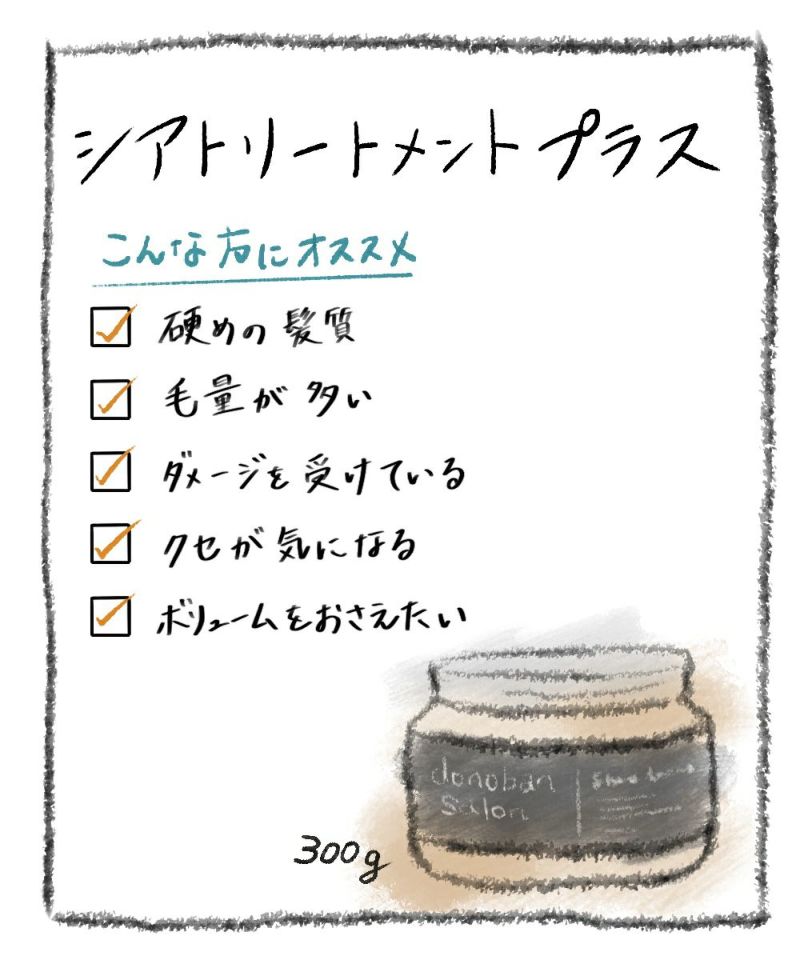 シアトリートメントプラス
こんな方にオススメ
硬めの髪質
毛量が多い
ダメージを受けている
クセが気になる
ボリュームをおさえたい
Jonoban
Salon
300g